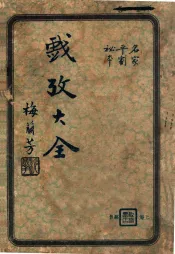 名家
平劇
秘本
戲攷大全
梅蘭芳